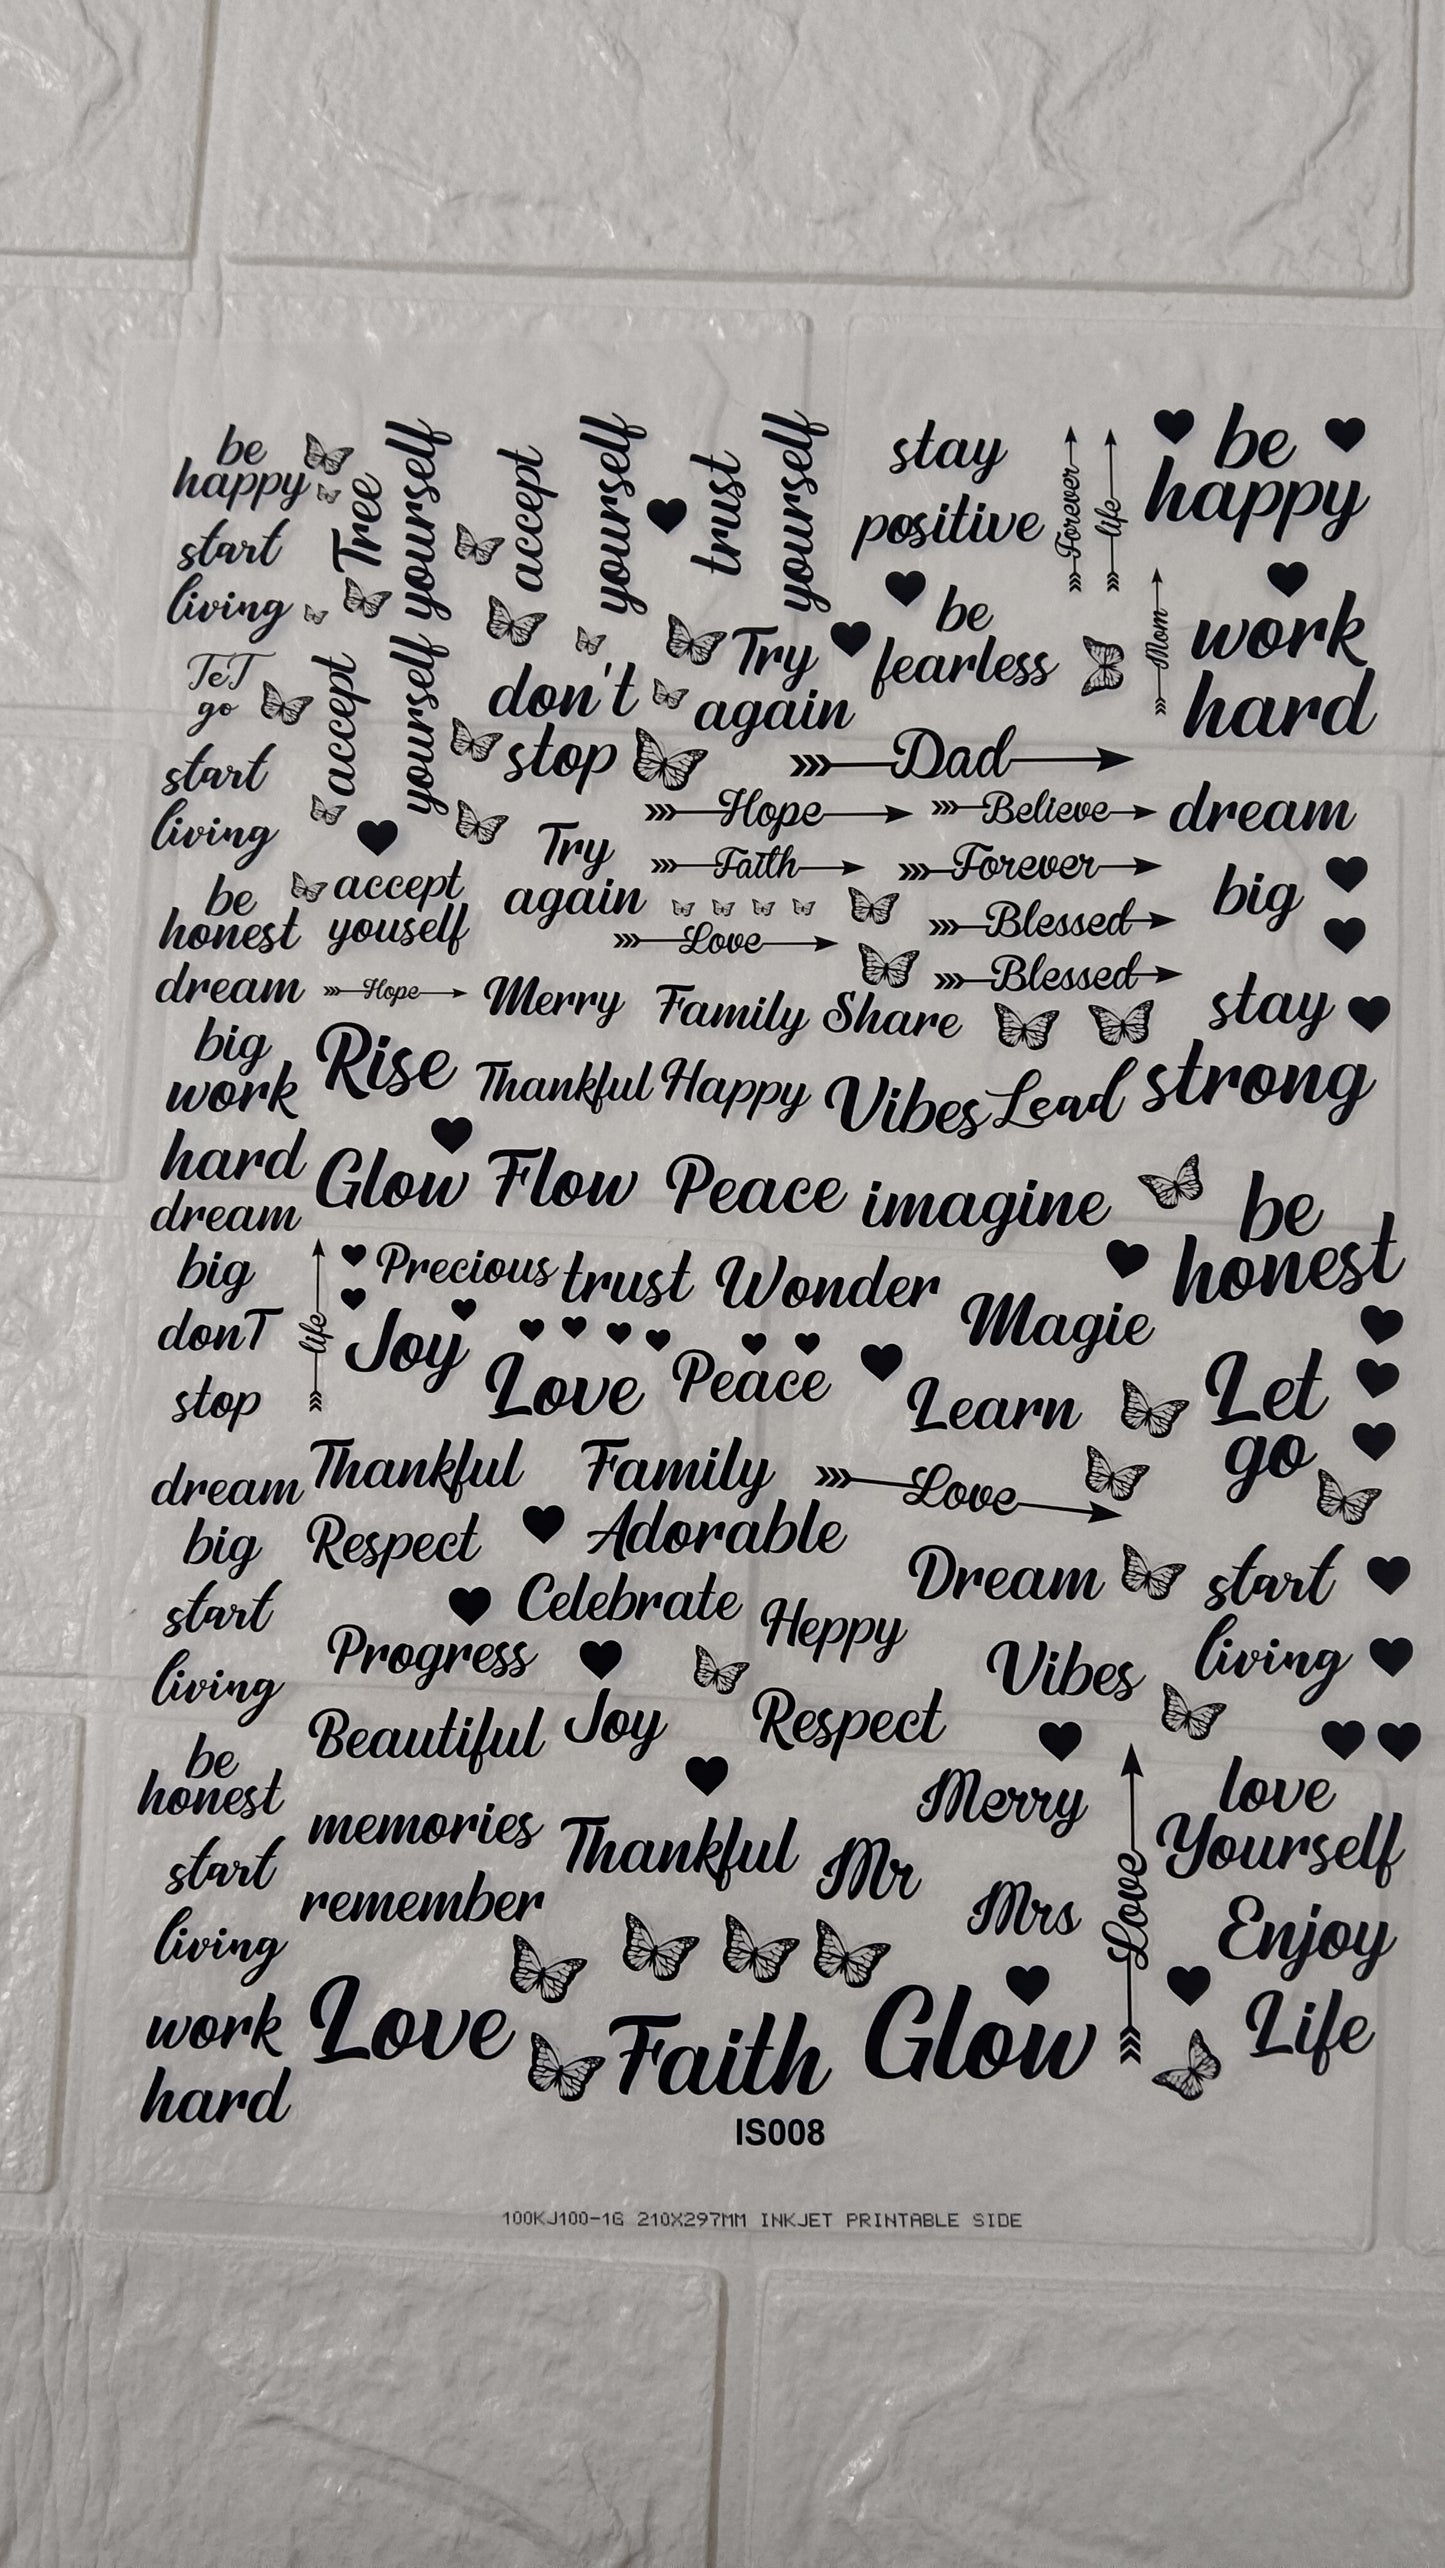 be
happy
start
living
TeT
go
start
living
be
honest
dream
big
work
hard
dream
big
donT
stop
dream
big
start
living
be
honest
start
living
work
hard
Tree
yourself
accept
yourself
accept
yourself
trust
yourself
accept
youself
don't
stop
Try
again
Try
again
stay
positive
Forever
life
be
fearless
Mom
be
happy
work
hard
Dad
Hope
Believe
Faith
Forever
Love
Blessed
Blessed
dream
big
stay
strong
Hope
Merry
Family
Share
Rise
Thankful
Happy
Vibes
Lead
Glow
Flow
Peace
imagine
be
honest
life
Precious
trust
Wonder
Magie
Joy
Love
Peace
Learn
Let
go
Thankful
Family
Love
Respect
Adorable
Dream
start
living
Celebrate
Heppy
Progress
Vibes
Beautiful
Joy
Respect
Merry
love
Yourself
memories
Thankful
Mr
Mrs
Love
Enjoy
Life
remember
Love
Faith
Glow
IS008
100KJ100-1G 210X297MM INKJET PRINTABLE SIDE